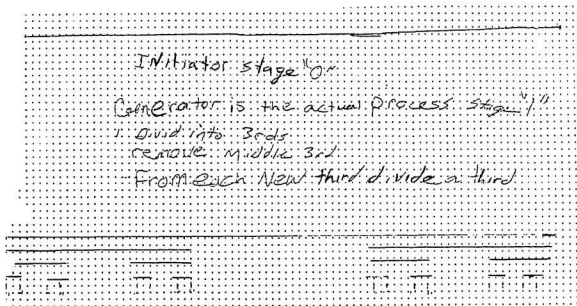 INitiator stage "0"
Generator is the actual process stage "1"
1 Divid into 3rds
remove middle 3rd
From each New third divide a third